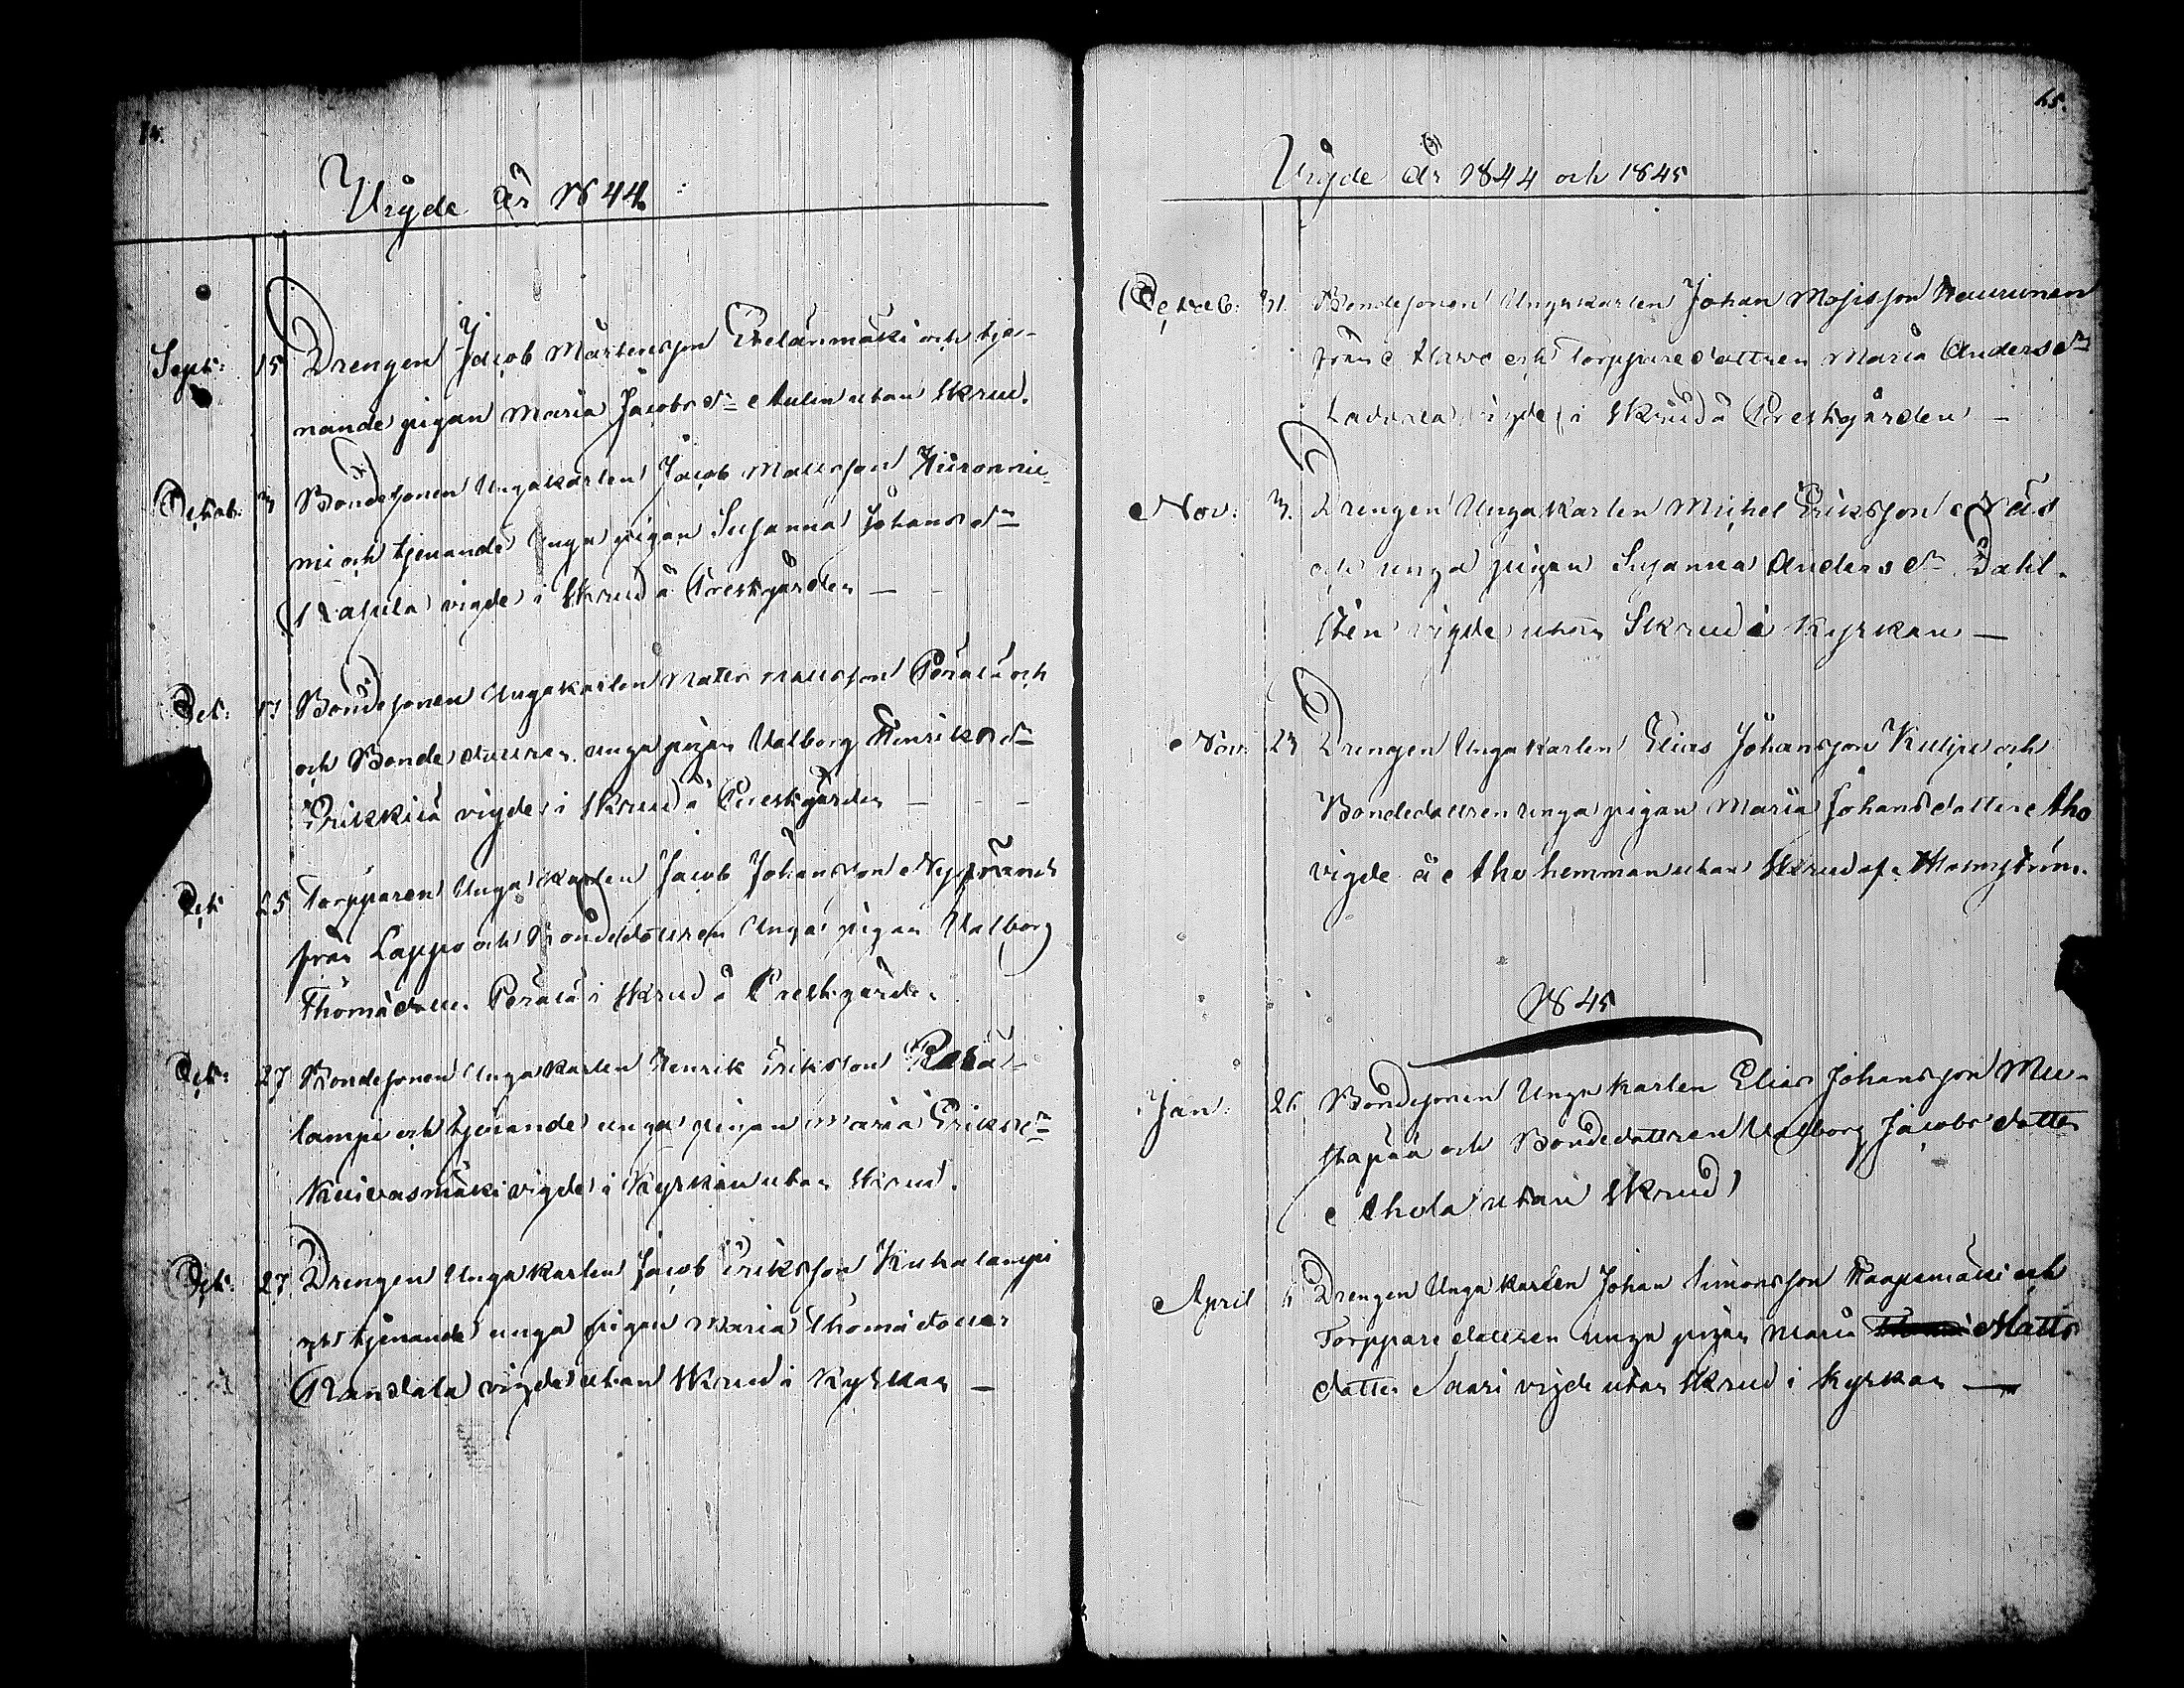 Vigde År 1844.
Sept: 15 Drengen Jacob Mårtensson Etelänmäki och tje-
nande pigan Maria Jacobsdr Aulin utan Skrud.
Octob: 3 Bondesonen Ungakarlen Jacob Mattsson
mi och tjenande Unga pigan Susanna Johansdr
vigde i Skrud å Prestgården —
Oct: Bondesonen Ungakarlen Matts Mattsson Perälä och
och Bondedottren unga pigan Valborg Henriksdr
Erikkilä vigde i Skrud å Prestgården — — —
Oct 25 Torpparen Unga Karlen Jacob Johansson
från Lappo och Bondedottren Unga pigan Valborg
Thomädotter Perälä i Skrud å Prestgården
Oct: 27 Bondesonen Unga Karlen Henrik Eriksson
lampi och tjenande unga pigan Maria Eriksdr
Kuivasmäki vigde i Kyrkan utan Skrud.
Oct: 27 Drengen Unga Karlen Jacob Eriksson Kuhalampi
och tjenande unga pigan Maria Thomädotter
Randala vigde utan Skrud i Kyrkan —
65.
Vigde År 1844 och 1845
Bondesonen Ungakarlen Johan Mosisson
från Alavo och Torpparedottren Maria Andersdr
vigde i Skrud å Prestgården —
Nov: 3. Drengen Unga Karlen Michel Eriksson Näs
och unga pigan Susanna Andersdr Dahl-
sten vigde utan Skrud i Kyrkan —
Nov: 23 Drengen Unga Karlen Elias Johansson Kulju och
Bondedottren unga pigan Maria Johansdotter Aho
vigde å Aho hemman utan Skrud af
1845
Jan: 26 Bondesonen Unga Karlen Elias Johansson Mu-
stapää och Bondedottren Valborg Jacobsdotter
Ahola utan Skrud
April 6 Drengen Unga Karlen Johan Simonsson Haapamäki och
Torpparedottren unga pigan Maria Matts
dotter Saari vigde utan Skrud i Kyrkan —